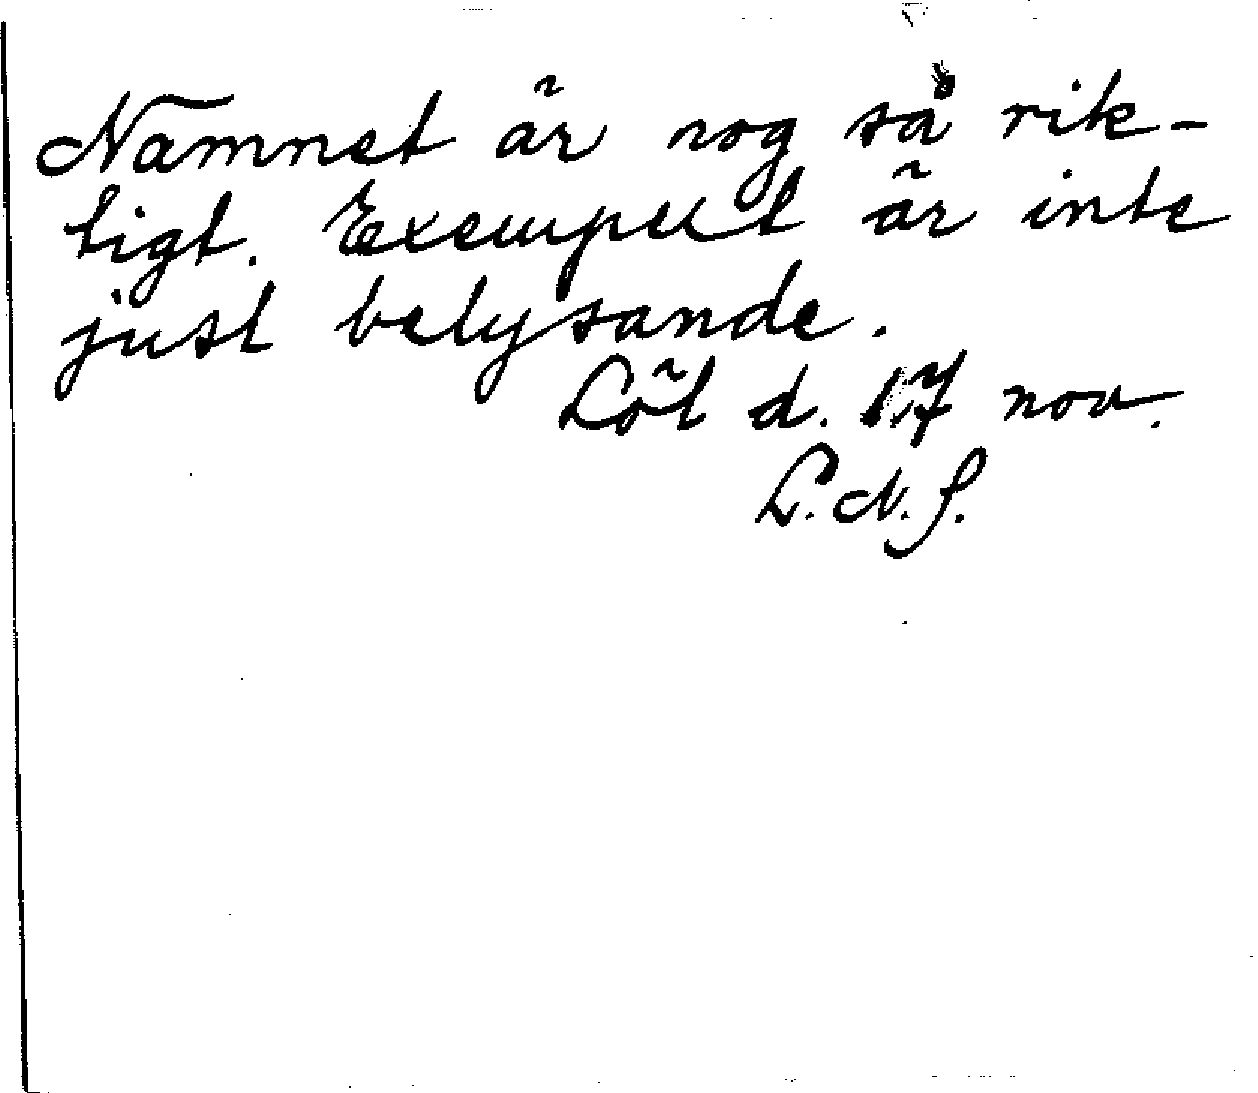 Namnet är nog så rik-
tigt. Exemplet är inte
just belysande.
Löt d. 17 nov.
L. N. S.